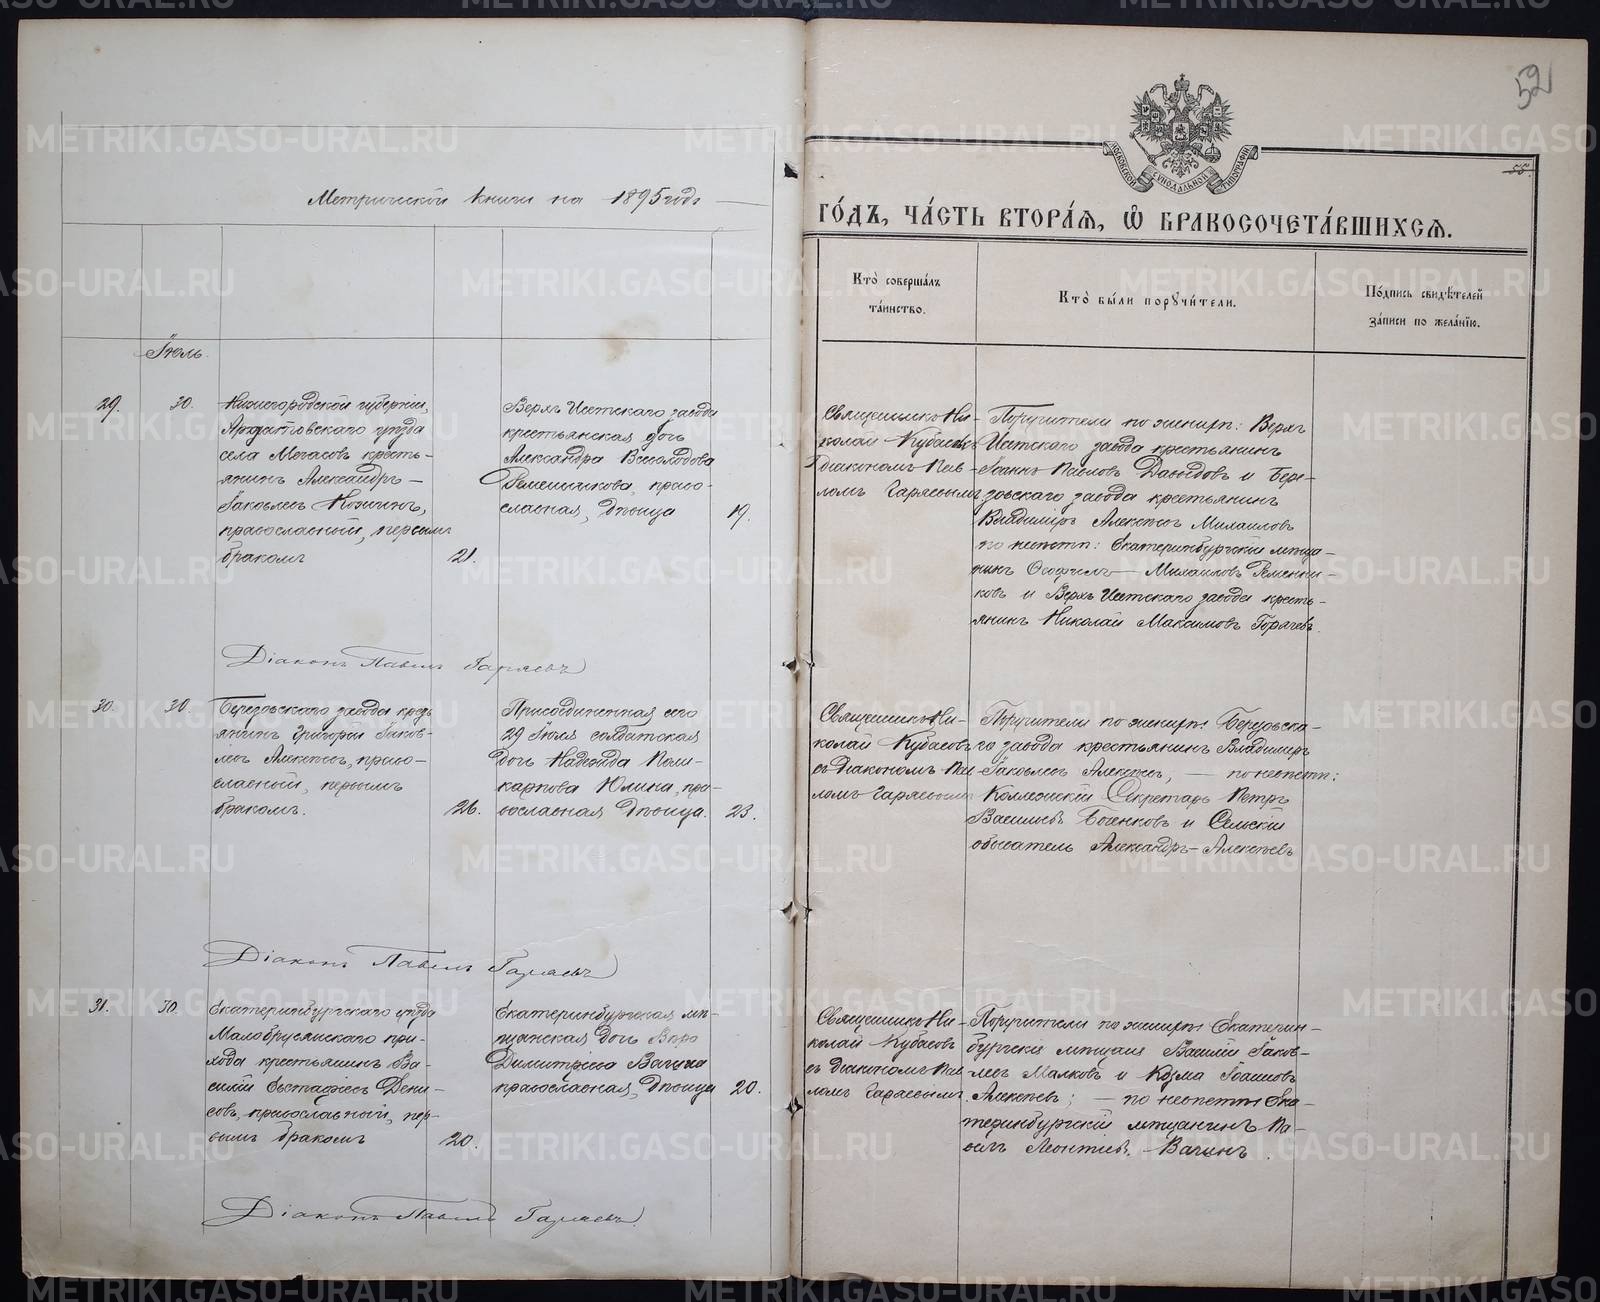 52
55.
МОСКОВСКОЙ СѴНОДАЛЬНОЙ ТИПОГРАФIИ
Метрической книги на 1895 годъ
ГО́ДЪ, ЧА́СТЬ ВТОРА́Ѧ, Ѽ БРАКОСОЧЕТА́ВШИХСѦ.
Кто̀ соверша́лъ
та́инство.
Кто̀ бы́ли порꙋчи́тели.
По́дпись свидѣ́телей
за́писи по жела́нїю.
Іюль.
29.
30.
Нижегородской губерніи,
Ардатовскаго уѣзда
села кресть-
янинъ Александръ
Іаковлевъ
православный, первымъ
бракомъ
21.
Верхъ Исетскаго завода
крестьянская дочь
Александра Всеволодова
Ременникова, право-
славная, дѣвица
19.
Священникъ Ни-
колай Кубасовъ
діакономъ Пав-
ломъ Гаряевымъ
Поручители по женихѣ: Верхъ
Исетскаго завода крестьянинъ
Іоаннъ Павловъ Давыдовъ и Бере-
зовскаго завода крестьянинъ
Владиміръ Алексѣевъ Михаиловъ
по невѣстѣ: Екатеринбургскій мѣща-
нинъ Михаиловъ Ременни-
ковъ и Верхъ Исетскаго завода кресть-
янинъ Николай Максимовъ Горячевъ.
Діаконъ Павелъ Гаряевъ
30.
30.
Березовскаго завода кресть
янинъ Григорій Іаков-
левъ Алексѣевъ, право-
славный, первымъ
бракомъ.
26.
Присоединенная сего
29 Іюля солдатская
дочь Надежда Поли-
карпова Юлина, пра-
вославная дѣвица.
23.
Священникъ Ни-
колай Кубасовъ
съ діакономъ Пав
ломъ Гаряевымъ
Поручители по женихѣ: Березовска-
го завода крестьянинъ Владиміръ
Іаковлевъ Алексѣевъ, — по невѣстѣ:
Коллежскій Секретарь Петръ
Васильевъ и Сельскій
обыватель Александръ Алексѣевъ
Діаконъ Павелъ Гаряевъ
31.
30.
Екатеринбургскаго уѣзда
Малобрусянскаго при-
хода крестьянинъ Ва-
силій Евстафіевъ Дени-
совъ, православный, пер-
вымъ бракомъ
20.
Екатеринбургская мѣ-
щанская дочь
Димитріева Вагина
православная, дѣвица
20.
Священникъ Ни-
колай Кубасовъ
съ діакономъ Пав
ломъ Гаряевымъ.
Поручители по женихѣ: Екатерин-
бургскіе мѣщане Василій Іаков-
левъ Малковъ и Козма Іоанновъ
Алексѣевъ; — по невѣстѣ: Ека-
теринбургскій мѣщанинъ Па-
велъ Леонтіевъ Вагинъ.
Діаконъ Павелъ Гаряевъ.
METRIKI.GASO-URAL.RU